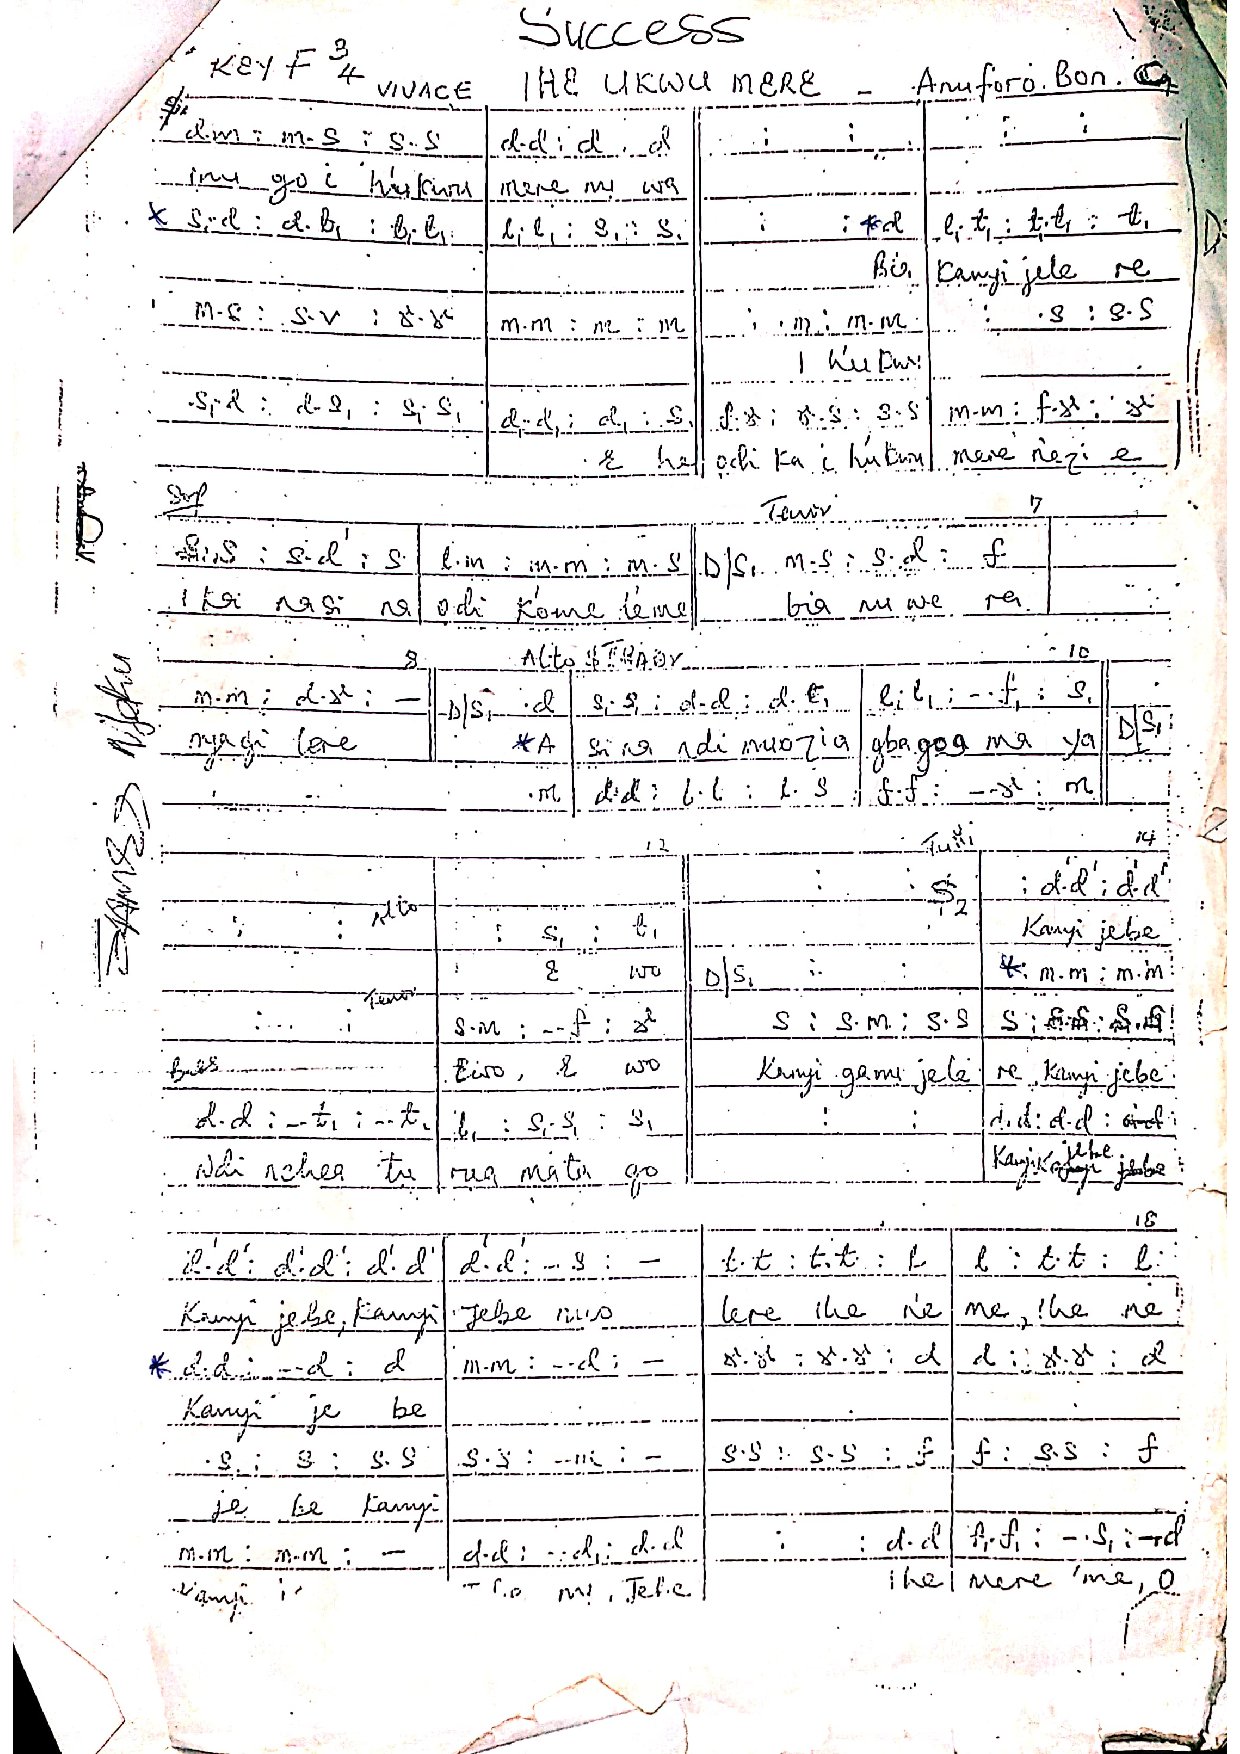 Success
KEY F 3/4 VIVACE IHE UKWU MERE - Anuforo. Bon. C
d.m : m.s : s.s | d.d : d . d | : : | : :
inu go i h'ukwu | mere nu wa
* s₁.d : d.t₁ : t₁.t₁ | l₁.l₁ : s₁ : s₁ | : : *d | l₁.t₁ : t₁.t₁ : t₁
Bia | Kanyi jele re
m.s : s.r : r.r | m.m : m : m | : .m : m.m | : .s : s.s
I h'ukwu
.s₁.d : d.s₁ : s₁.s₁ | d₁.d₁ : d₁ : s₁ | f.r : r.s : s.s | m.m : f.r : r
E he | odi ka i h'ukwu | mere n'ezi e
Sop Tenor 7
s.s : s.d' : s | l.m : m.m : m.s || D|S₁ m.s : s.d : f
I kai nasi na | odi k'ome teme || bia nu we ra
8 Alto & Tenor 10
m.m : d.r : - || D|S₁ .d | s₁.s₁ : d.d : d.t₁ | l₁.l₁ : -.f₁ : s₁ || D|S₁
nyagi lere || *A | si na ndi nuozia | gbagoa ma ya
.m | d.d : l.l : l.s | f.f : -.r : m
12 Tutti 14
: : | || : : | : d'.d' : d'.d'
: : Alto | : s₁ : t₁ || | Kanyi jebe
E wo || D|S₁ : : | * : m.m : m.m
: : Tenor | s.m : -.f : r || s : s.m : s.s | s :
Bass | Ewo, E wo || Kanyi gami jele | re, Kanyi jebe
d.d : -.t₁ : -.t₁ | l₁ : s₁.s₁ : s₁ || : : | d.d : d.d :
Ndi nchea tu | rua matu go || | Kanyi jebe
18
d'.d' : d'.d' : d'.d' | d'.d' : -.s : - | t.t : t.t : l | l : t.t : l
Kanyi jebe, Kanyi | jebe nuo | lere ihe ne | me, ihe ne
* d.d : -.d : d | m.m : -.d : - | r.r : r.r : d | d : r.r : d
Kanyi je be
.s : s : s.s | s.s : -.m : - | s.s : s.s : f | f : s.s : f
je be Kanyi
m.m : m.m : - | d.d : -.d₁ : d.d | : : d.d | f₁.f₁ : -.s₁ : -.d
Kanyi | Jebe | Ihe | mere 'me, O